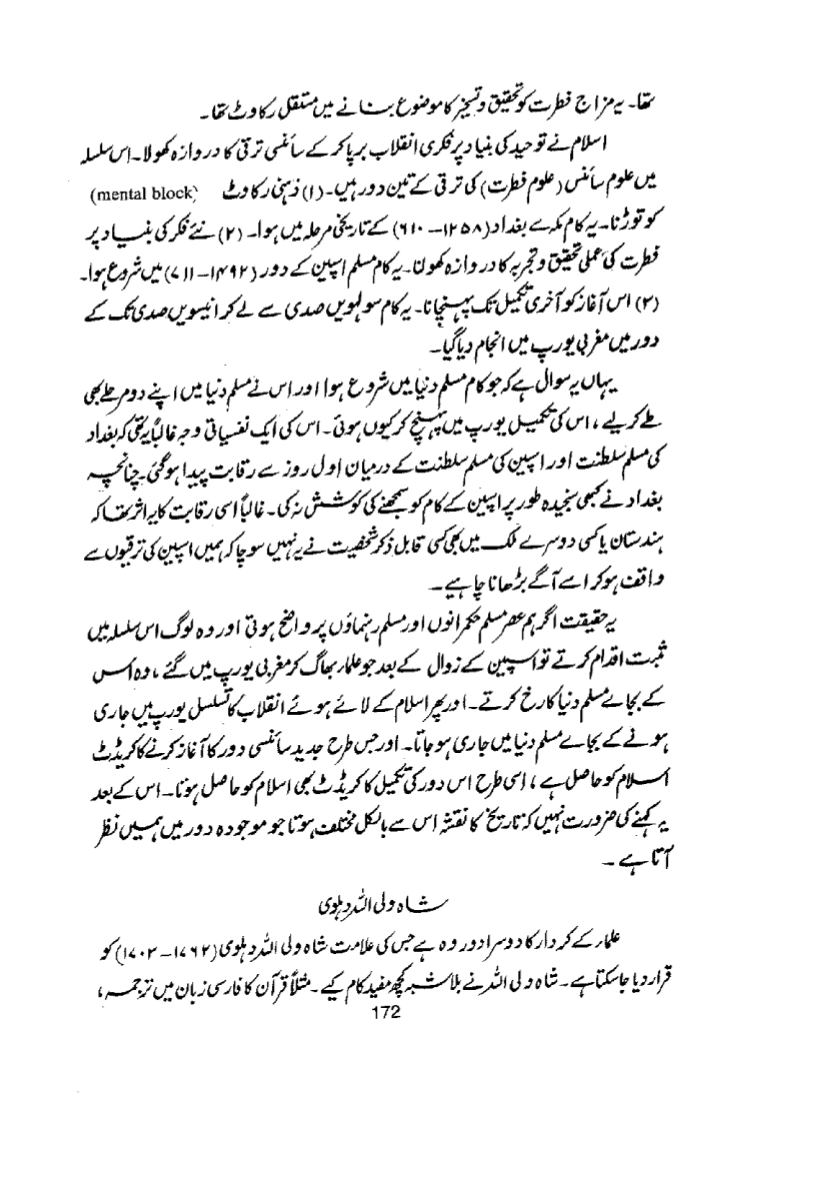 تھا۔ یہ مزاج فطرت کو تحقیق و تسخیر کا موضوع بنانے میں مستقل رکاوٹ تھا۔
اسلام نے توحید کی بنیاد پر فکری انقلاب برپا کر کے سائنسی ترقی کا دروازہ کھولا۔ اس سلسلہ
میں علوم سائنس (علوم فطرت) کی ترقی کے تین دور ہیں۔ (۱) ذہنی رکاوٹ (mental block)
کو توڑنا۔ یہ کام مکہ سے بغداد (۱۲۵۸-۶۱۰) کے تاریخی مرحلہ میں ہوا۔ (۲) نئے فکر کی بنیاد پر
فطرت کی عملی تحقیق و تجربہ کا دروازہ کھولنا۔ یہ کام مسلم اسپین کے دور (۱۴۹۲-۷۱۱) میں شروع ہوا۔
(۳) اس آغاز کو آخری تکمیل تک پہنچانا۔ یہ کام سولہویں صدی سے لے کر انیسویں صدی تک کے
دور میں مغربی یورپ میں انجام دیا گیا۔
یہاں یہ سوال ہے کہ جو کام مسلم دنیا میں شروع ہوا اور اس نے مسلم دنیا میں اپنے دو مرحلے بھی
طے کر لیے، اس کی تکمیل یورپ میں پہنچ کر کیوں ہوئی۔ اس کی ایک نفسیاتی وجہ غالباً یہ تھی کہ بغداد
کی مسلم سلطنت اور اسپین کی مسلم سلطنت کے درمیان اول روز سے رقابت پیدا ہو گئی۔ چنانچہ
بغداد نے کبھی سنجیدہ طور پر اسپین کے کام کو سمجھنے کی کوشش نہ کی۔ غالباً اسی رقابت کا یہ اثر تھا کہ
ہندستان یا کسی دوسرے ملک میں بھی کسی قابل ذکر شخصیت نے یہ نہیں سوچا کہ ہمیں اسپین کی ترقیوں سے
واقف ہو کر اسے آگے بڑھانا چاہیے۔
یہ حقیقت اگر ہم عصر مسلم حکمرانوں اور مسلم رہنماؤں پر واضح ہوتی اور وہ لوگ اس سلسلہ میں
مثبت اقدام کرتے تو اسپین کے زوال کے بعد جو علماء بھاگ کر مغربی یورپ میں گئے، وہ اس
کے بجائے مسلم دنیا کا رخ کرتے۔ اور پھر اسلام کے لائے ہوئے انقلاب کا تسلسل یورپ میں جاری
ہونے کے بجائے مسلم دنیا میں جاری ہو جاتا۔ اور جس طرح جدید سائنسی دور کا آغاز کرنے کا کریڈٹ
اسلام کو حاصل ہے، اسی طرح اس دور کی تکمیل کا کریڈٹ بھی اسلام کو حاصل ہوتا۔ اس کے بعد
یہ کہنے کی ضرورت نہیں کہ تاریخ کا نقشہ اس سے بالکل مختلف ہوتا جو موجودہ دور میں ہمیں نظر
آتا ہے۔
شاہ ولی اللہ دہلوی
علماء کے کردار کا دوسرا دور وہ ہے جس کی علامت شاہ ولی اللہ دہلوی (۱۷۶۲-۱۷۰۳) کو
قرار دیا جا سکتا ہے۔ شاہ ولی اللہ نے بلاشبہ کچھ مفید کام کیے۔ مثلاً قرآن کا فارسی زبان میں ترجمہ،
172